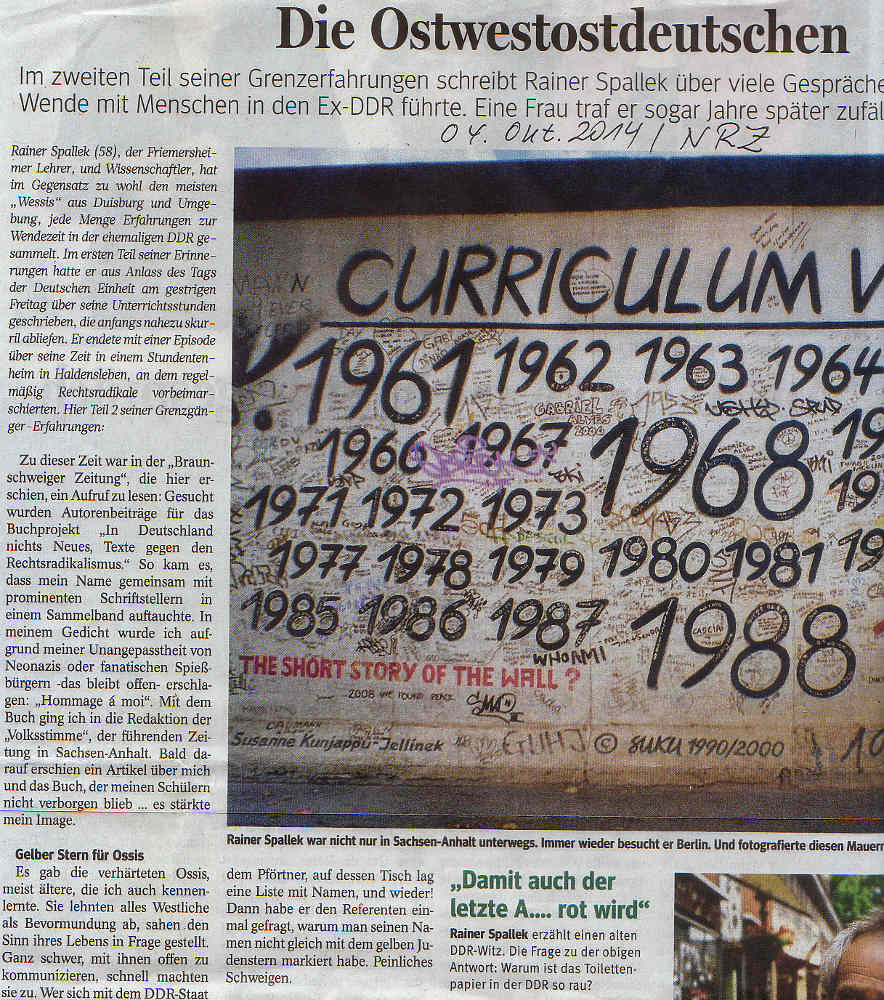 Die Ostwestostdeutschen
Im zweiten Teil seiner Grenzerfahrungen schreibt Rainer Spallek über viele Gespräche
Wende mit Menschen in den Ex-DDR führte. Eine Frau traf er sogar Jahre später
04. Okt. 2014 / NRZ
Rainer Spallek (58), der Friemershei-
mer Lehrer, und Wissenschaftler, hat
im Gegensatz zu wohl den meisten
„Wessis“ aus Duisburg und Umge-
bung, jede Menge Erfahrungen zur
Wendezeit in der ehemaligen DDR ge-
sammelt. Im ersten Teil seiner Erinne-
rungen hatte er aus Anlass des Tags
der Deutschen Einheit am gestrigen
Freitag über seine Unterrichtsstunden
geschrieben, die anfangs nahezu skur-
ril abliefen. Er endete mit einer Episode
über seine Zeit in einem Stundenten-
heim in Haldensleben, an dem regel-
mäßig Rechtsradikale vorbeimar-
schierten. Hier Teil 2 seiner Grenzgän-
ger-Erfahrungen:
Zu dieser Zeit war in der „Braun-
schweiger Zeitung“, die hier er-
schien, ein Aufruf zu lesen: Gesucht
wurden Autorenbeiträge für das
Buchprojekt „In Deutschland
nichts Neues, Texte gegen den
Rechtsradikalismus.“ So kam es,
dass mein Name gemeinsam mit
prominenten Schriftstellern in
einem Sammelband auftauchte. In
meinem Gedicht wurde ich auf-
grund meiner Unangepasstheit von
Neonazis oder fanatischen Spieß-
bürgern -das bleibt offen- erschla-
gen: „Hommage á moi“. Mit dem
Buch ging ich in die Redaktion der
„Volksstimme“, der führenden Zei-
tung in Sachsen-Anhalt. Bald da-
rauf erschien ein Artikel über mich
und das Buch, der meinen Schülern
nicht verborgen blieb ... es stärkte
mein Image.
Gelber Stern für Ossis
Es gab die verhärteten Ossis,
meist ältere, die ich auch kennen-
lernte. Sie lehnten alles Westliche
als Bevormundung ab, sahen den
Sinn ihres Lebens in Frage gestellt.
Ganz schwer, mit ihnen offen zu
kommunizieren, schnell machten
sie zu. Wer sich mit dem DDR-Staat
CURRICULUM V
1961 1962 1963 1964
GABRIEL
ALVES
2000
1966 1967 1968 19
1971 1972 1973 19
1977 1978 1979 1980 1981 19
1985 1986 1987 1988
CASCIA
WHOAMI
THE SHORT STORY OF THE WALL ?
2008 WE FOUND PEACE
Susanne Kunjappu-Jellinek © SUKU 1990/2000
Rainer Spallek war nicht nur in Sachsen-Anhalt unterwegs. Immer wieder besucht er Berlin. Und fotografierte diesen Mauern
dem Pförtner, auf dessen Tisch lag
eine Liste mit Namen, und wieder!
Dann habe er den Referenten ein-
mal gefragt, warum man seinen Na-
men nicht gleich mit dem gelben Ju-
denstern markiert habe. Peinliches
Schweigen.
„Damit auch der
letzte A.... rot wird“
Rainer Spallek erzählt einen alten
DDR-Witz. Die Frage zu der obigen
Antwort: Warum ist das Toiletten-
papier in der DDR so rau?